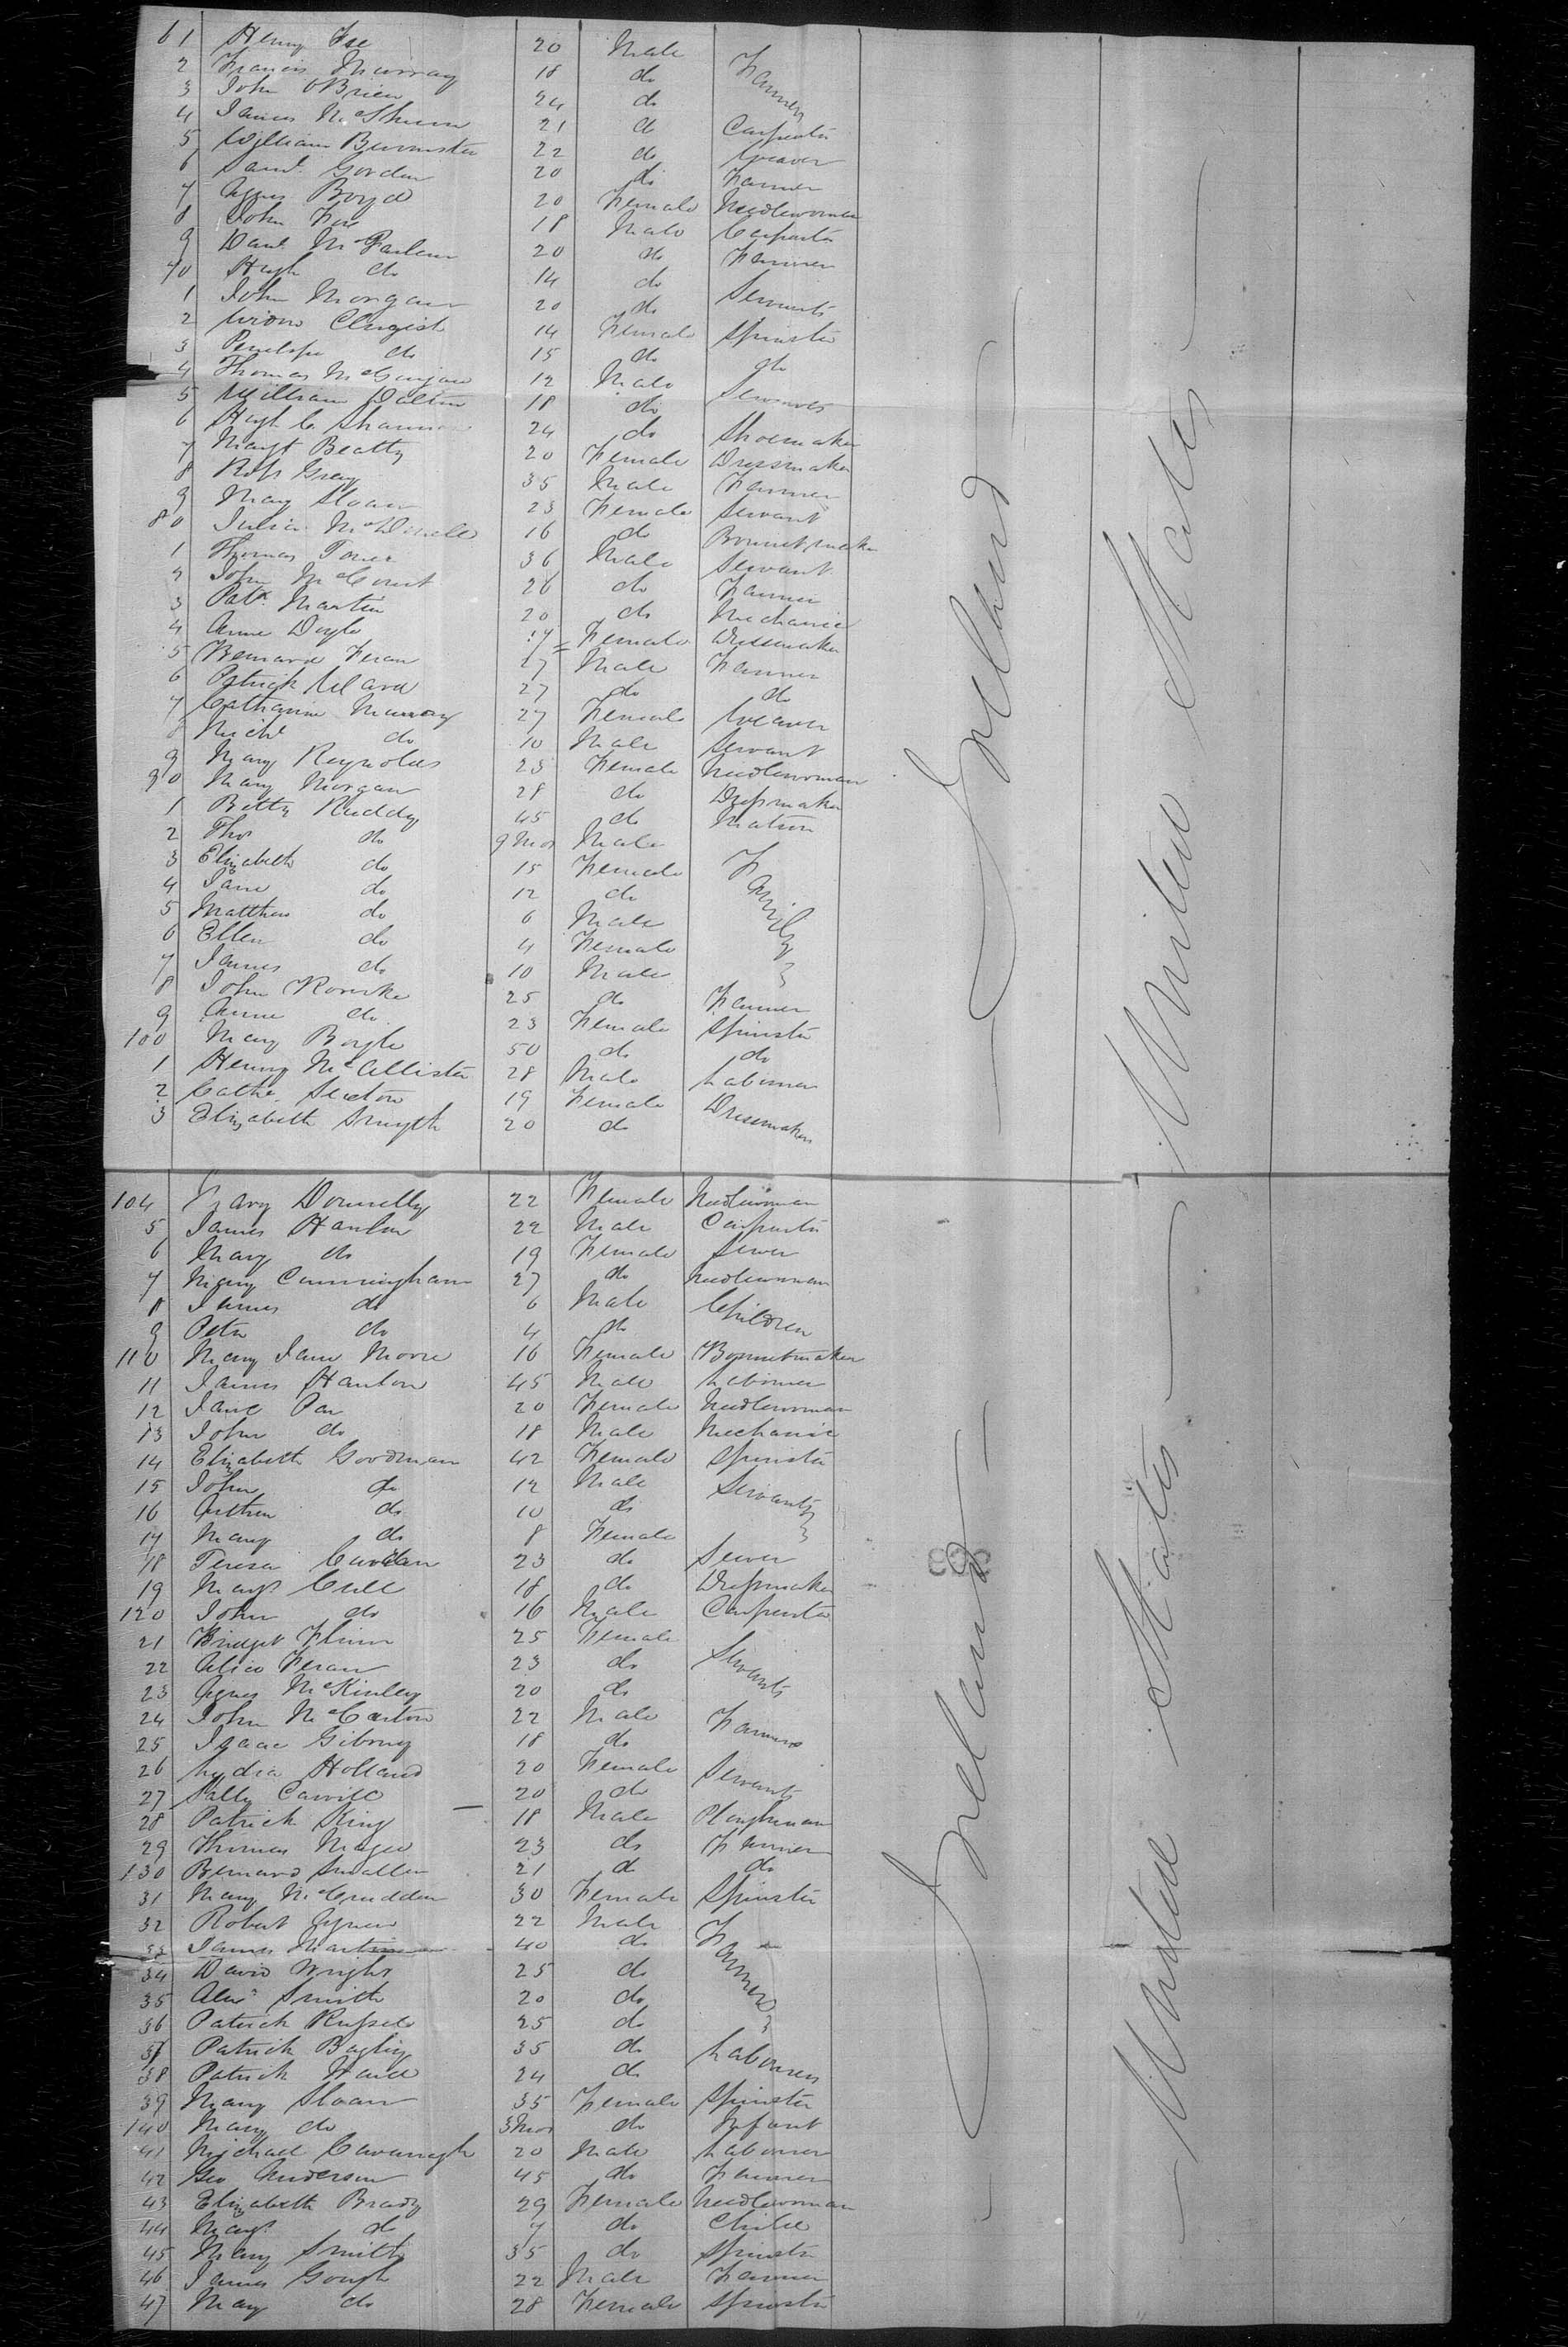 61 Henry Fee 20 Male
2 Francis Murray 18 do Farmers
3 John OBrien 24 do
4 James McShane 21 do Carpenter
5 William 22 do Weaver
6 Saml. Gordon 20 do Farmer
7 Agnes Boyd 20 Female Needlewoman
8 John Fee 18 Male Carpenter
9 Danl. McParlan 20 do Farmer
70 Hugh do 14 do Servants
1 John Morgan 20 do
2 14 Female Spinster
3 Penelope do 15 do do
4 Thomas 12 Male Servants
5 William Dalton 18 do
6 Hugh C. Shannon 24 do Shoemaker
7 Margt Beatty 20 Female Dressmaker
8 Robt Gray 35 Male Farmer
9 Mary Sloan 23 Female Servant
80 Julia 16 do Bonnetmaker
1 Thomas 36 Male Servant
2 John McCourt 26 do Farmer
3 Patk. Martin 20 do Mechanic
4 Anne Doyle 17 Female Dressmaker
5 Bernard Feran 27 Male Farmer
6 Patrick Ward 27 do do
7 Catharine Murray 27 Female Weaver
8 Michl do 10 Male Servant
9 Mary Reynolds 23 Female Needlewoman
90 Mary Morgan 28 do Dressmaker
1 Betty Ruddy 45 do Matron
2 Thos do 9 Mos Male
3 Elizabeth do 15 Female Family
4 Jane do 12 do
5 Matthew do 6 Male
6 Ellen do 4 Female
7 James do 10 Male
8 John Rourke 25 do Farmer
9 Anne do 23 Female Spinster
100 Mary Boyle 50 do do
1 Henry McAllister 28 Male Labourer
2 Cathe. Sexton 19 Female Dressmakers
3 Elizabeth Smyth 20 do
Ireland
United States
104 Mary Donnelly 22 Female Needlewoman
5 James Hanlon 22 Male Carpenter
6 Mary do 19 Female Sewer
7 Mary Cunningham 27 do Needlewoman
8 James do 6 Male Children
9 Peter do 4 do
110 Mary Jane Moore 16 Female Bonnetmaker
11 James Hanlon 45 Male Labourer
12 Jane 20 Female Needlewoman
13 John do 18 Male Mechanic
14 Elizabeth Goodman 42 Female Spinster
15 John do 12 Male Servants
16 Arthur do 10 do
17 Mary do 8 Female
18 Teresa 23 do Sewer
19 Margt Cull 18 do Dressmaker
120 John do 16 Male Carpenter
21 Bridget Flinn 25 Female
22 Alice Feran 23 do Servants
23 Agnes McKinley 20 do
24 John McCartan 22 Male Farmers
25 Isaac Gibony 18 do
26 Lydia Holland 20 Female Servants
27 Sally Carvill 20 do
28 Patrick King 18 Male Ploughman
29 Thomas Magee 23 do Farmer
130 Bernard Smallen 21 do do
31 Mary McCrudden 30 Female Spinster
32 Robert Agnew 22 Male
33 James Martin 40 do Farmers
34 David Wright 25 do
35 Alexr Smith 20 do
36 Patrick Russell 25 do
37 Patrick 35 do Labourers
38 Patrick 24 do
39 Mary Sloan 35 Female Spinster
140 Mary do 3 Mos do Infant
41 Michael Cavanagh 20 Male Labourer
42 Geo Anderson 45 do Farmer
43 Elizabeth Brady 29 Female Needlewoman
44 Margt do 7 do Child
45 Mary Smith 35 do Spinster
46 James Gough 22 Male Farmer
47 Mary do 28 Female Spinster
Ireland
United States